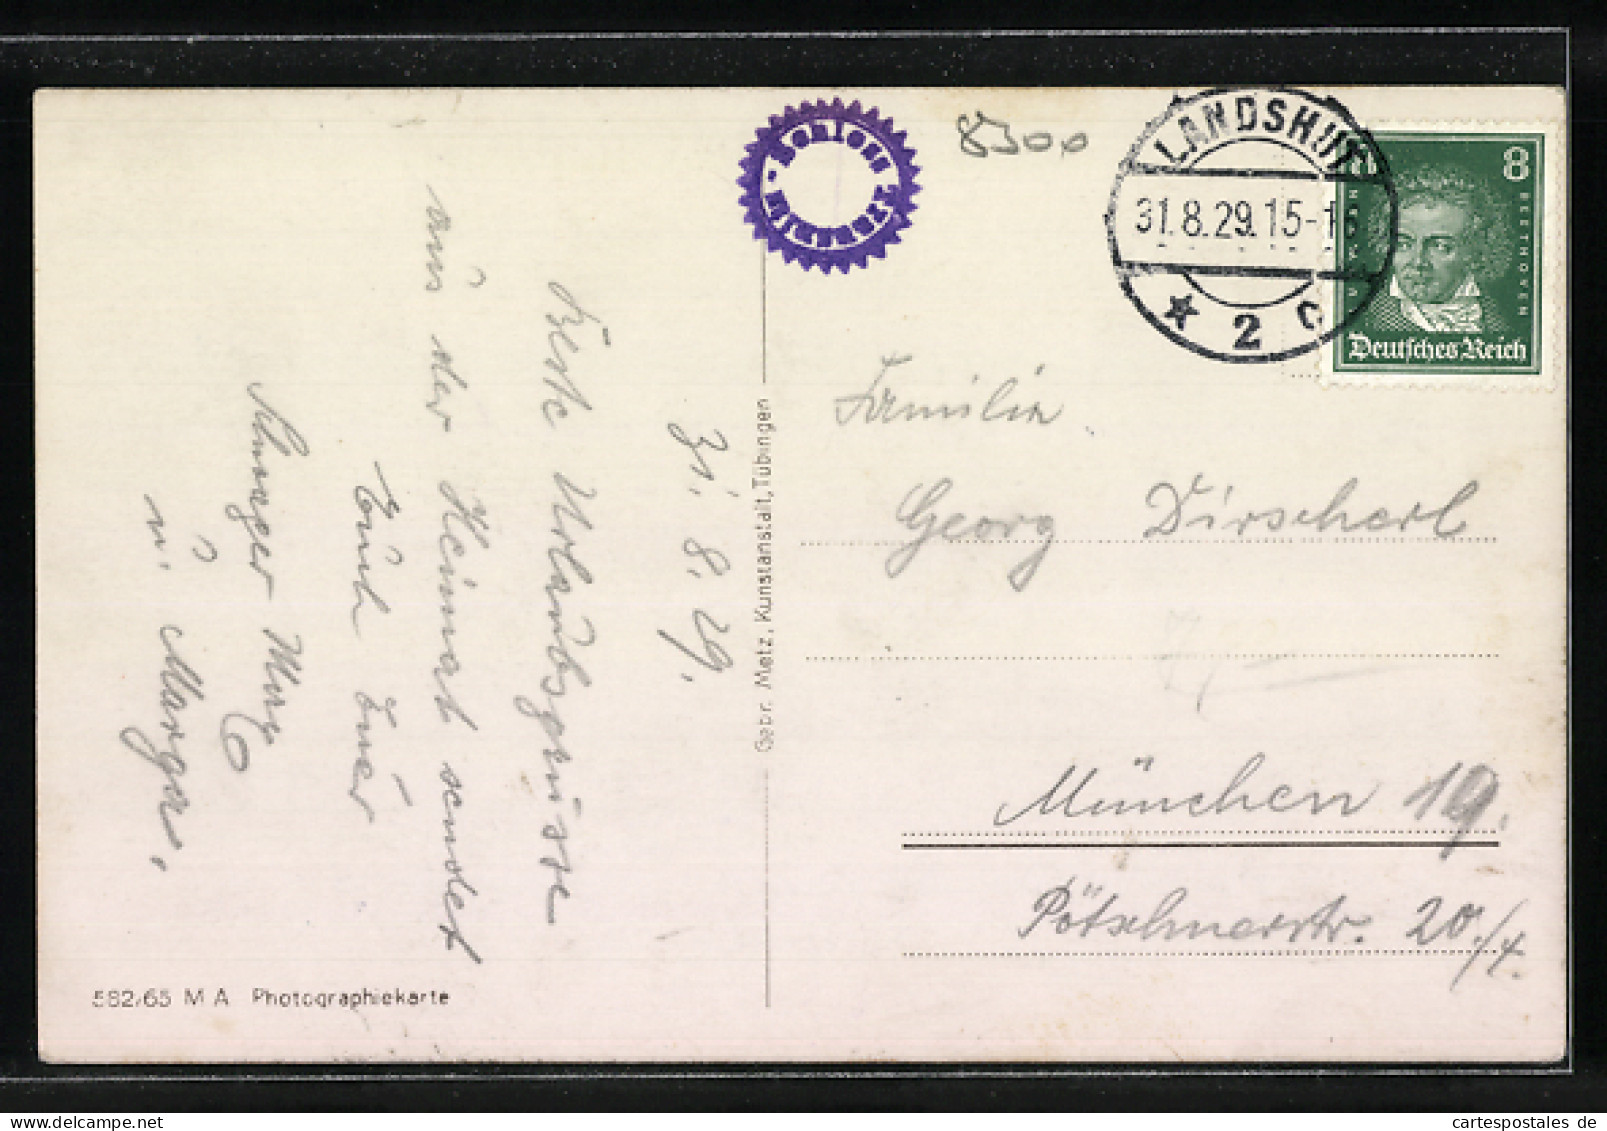 31. 8. 29.
Beste Urlaubsgrüsse
aus der Heimat sendet
Euch Euer
Schwager
u. Marga.
Gebr. Metz, Kunstanstalt, Tübingen
582/65 M A Photographiekarte
Schloss
8300
LANDSHUT
31.8.29.15-16
* 2 c
8 8
BEETHOVEN
Deutsches Reich
Familie
Georg Dirscherl
München 19.
Pötschnerstr. 20./4.
cartespostales de